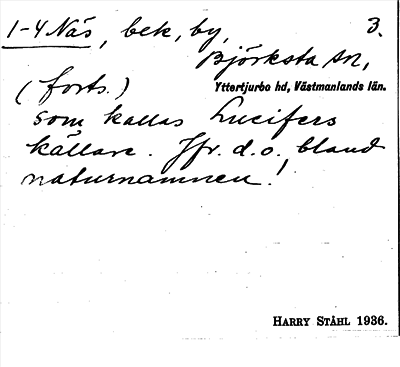 1-4 Näs, bek, by, 3.
Björksta sn,
(forts.) Yttertjurbo hd, Västmanlands län.
som kallas Lucifers
källare. Jfr. d.o. bland
naturnamnen!
HARRY STÅHL 1936.